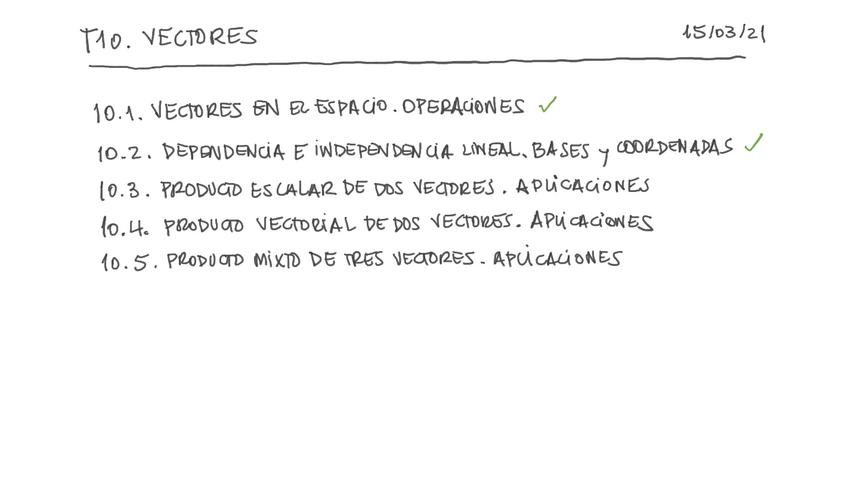 T10. VECTORES 15/03/21
10.1. VECTORES EN EL ESPACIO. OPERACIONES ✓
10.2. DEPENDENCIA E INDEPENDENCIA LINEAL. BASES y COORDENADAS ✓
10.3. PRODUCTO ESCALAR DE DOS VECTORES. APLICACIONES
10.4. PRODUCTO VECTORIAL DE DOS VECTORES. APLICACIONES
10.5. PRODUCTO MIXTO DE TRES VECTORES. APLICACIONES